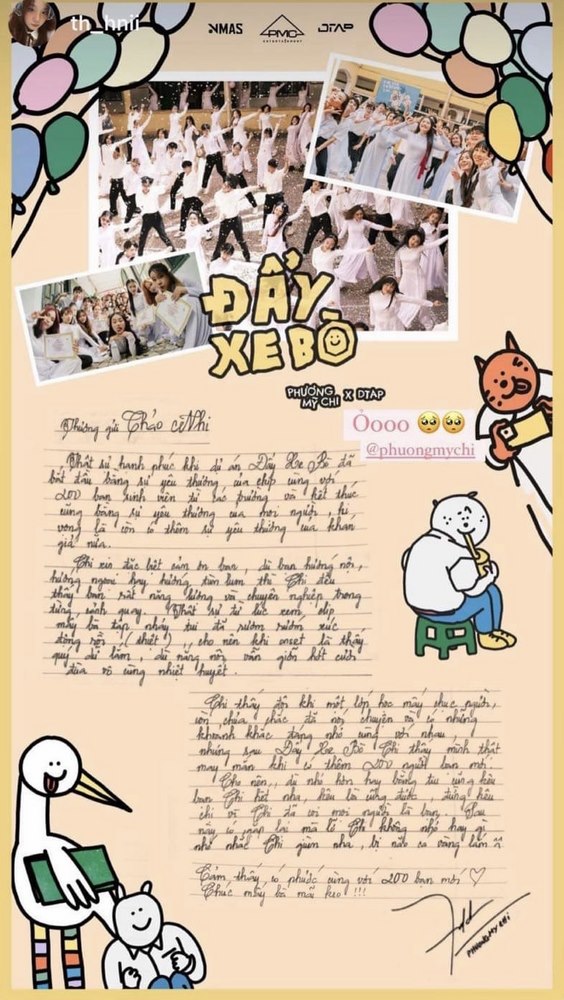 th_hnii
VMAS PMC ENTERTAINMENT DTAP
ĐẨY
XE BÒ
PHƯƠNG MỸ CHI X DTAP
Ỏooo 🥺🥺
@phuongmychi
Thương gửi Thảo Nhi
Thật sự hạnh phúc khi dự án Đẩy Xe Bò đã
bắt đầu bằng sự yêu thương của cùng với
200 bạn sinh viên từ các trường và kết thúc
cũng bằng sự yêu thương của mọi người, hi
vọng là còn có thêm sự yêu thương của khán
giả nữa.
Chi xin đặc biệt cảm ơn bạn, dù bạn hướng nội,
hướng ngoại hay hướng tùm lum thì Chi đều
thấy bạn rất năng lượng và chuyên nghiệp trong
từng cảnh quay. Thật sự từ lúc xem clip
mấy bà tập nhảy tui đã rươm rướm xúc
động rồi (thiệt), cho nên khi onset là thấy
quý dữ lắm, dù nắng nôi vẫn giỡn hớt cười
đùa vô cùng nhiệt huyết.
Chi thấy đôi khi một lớp học mấy chục người,
còn chưa chắc đã nói chuyện và có những
khoảnh khắc đáng nhớ cùng với nhau,
nhưng sau Đẩy Xe Bò Chi thấy mình thật
may mắn khi có thêm 200 người bạn mới.
Cho nên, dù nhỏ hơn hay bằng tui cũng kêu
bạn Chi hết nha, kêu lời cũng được, đừng kêu
chị vì Chi đã coi mọi người là bạn. Sau
này có gặp lại mà lỡ Chi không nhớ hay gì
nhớ nhắc Chi giùm nha, bị não cá vàng lắm
Cảm thấy có phước cùng với 200 bạn mới ♡
Chúc mấy bà mãi keo !!!
PHUONG MY CHI